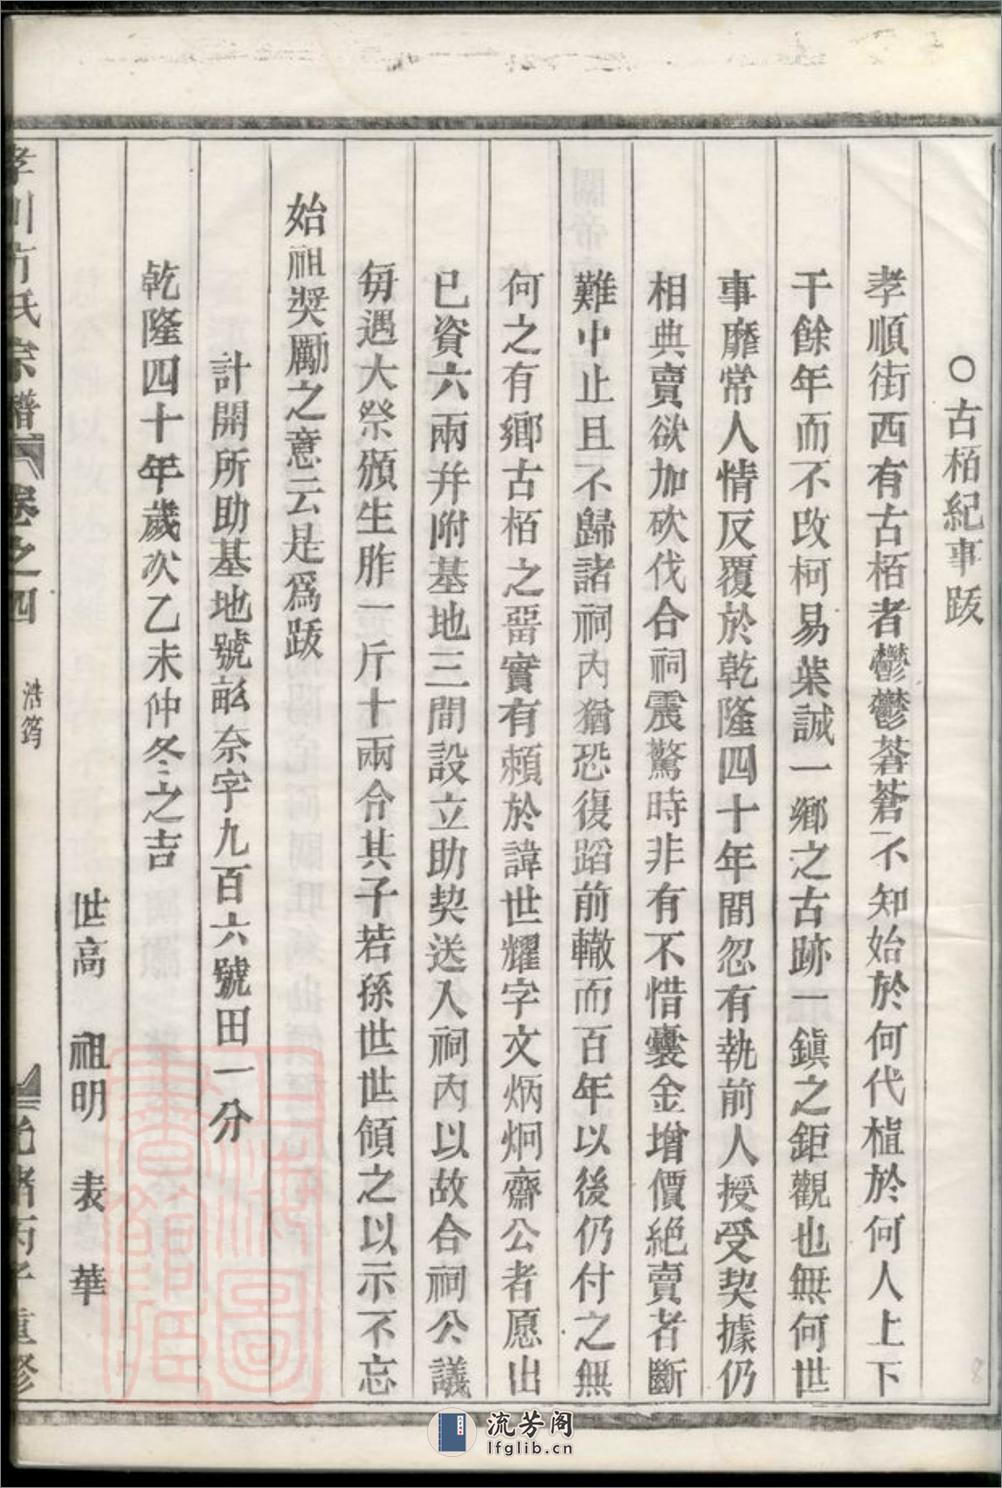 ○古栢紀事䟦
孝順街西有古栢者鬱鬱蒼蒼不知始於何代植於何人上下
千餘年而不改柯易葉誠一鄉之古跡一鎮之鉅觀也無何世
事靡常人情反覆於乾隆四十年間忽有執前人授受契據仍
相典賣欲加砍伐合祠震驚時非有不惜囊金增價絕賣者斷
難中止且不歸諸祠內猶恐復蹈前轍而百年以後仍付之無
何之有鄉古栢之畱實有賴於諱世耀字文炳炯齋公者愿出
已資六兩幷附基地三間設立助契送入祠內以故合祠公議
每遇大祭頒生胙一斤十兩令其子若孫世世傾之以示不忘
始祖奬勵之意云是爲䟦
計開所助基地號畝奈字九百六號田一分
乾隆四十年歲次乙未仲冬之吉
世高 祖明 表 華
孝川方氏宗譜 卷之四 浩筠 光緒丙子重修
上海圖書館藏
流芳阁
lfglib.cn
8